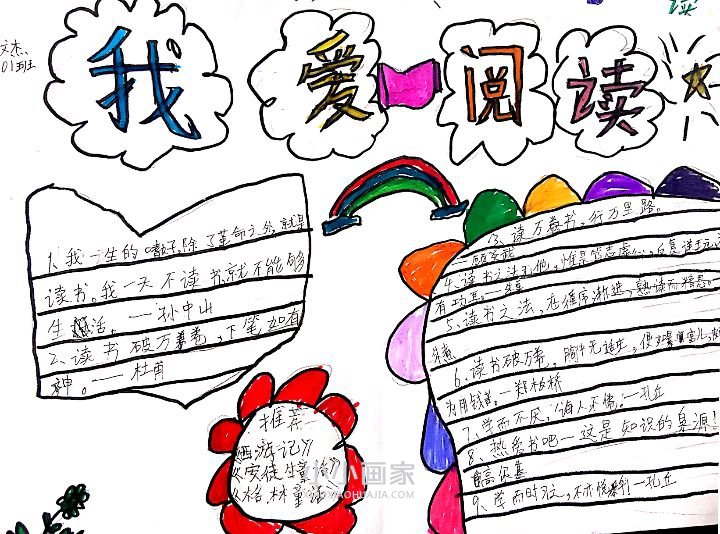 读
文杰
01班
我爱阅读
1、我一生的嗜好,除了革命之外,就是
读书。我一天不读书,就不能够
生活。——孙中山
2、读书破万卷,下笔如有
神。——杜甫
推荐
西游记》
《安徒生童话》
《格林童话
小小画家
XIAOHUAJIA.COM
3、读万卷书,行万里路。
4、读书之法无他,惟是
有功
5、读书之法,在循序渐进,熟读而精思。
朱熹
6、读书破万卷,胸中无适主,便
为用钱者。——郑板桥
7、学而不厌,诲人不倦。——孔丘
8、热爱书吧——这是知识的泉源!
高尔基
9、学而时习之,不亦悦乎——孔丘